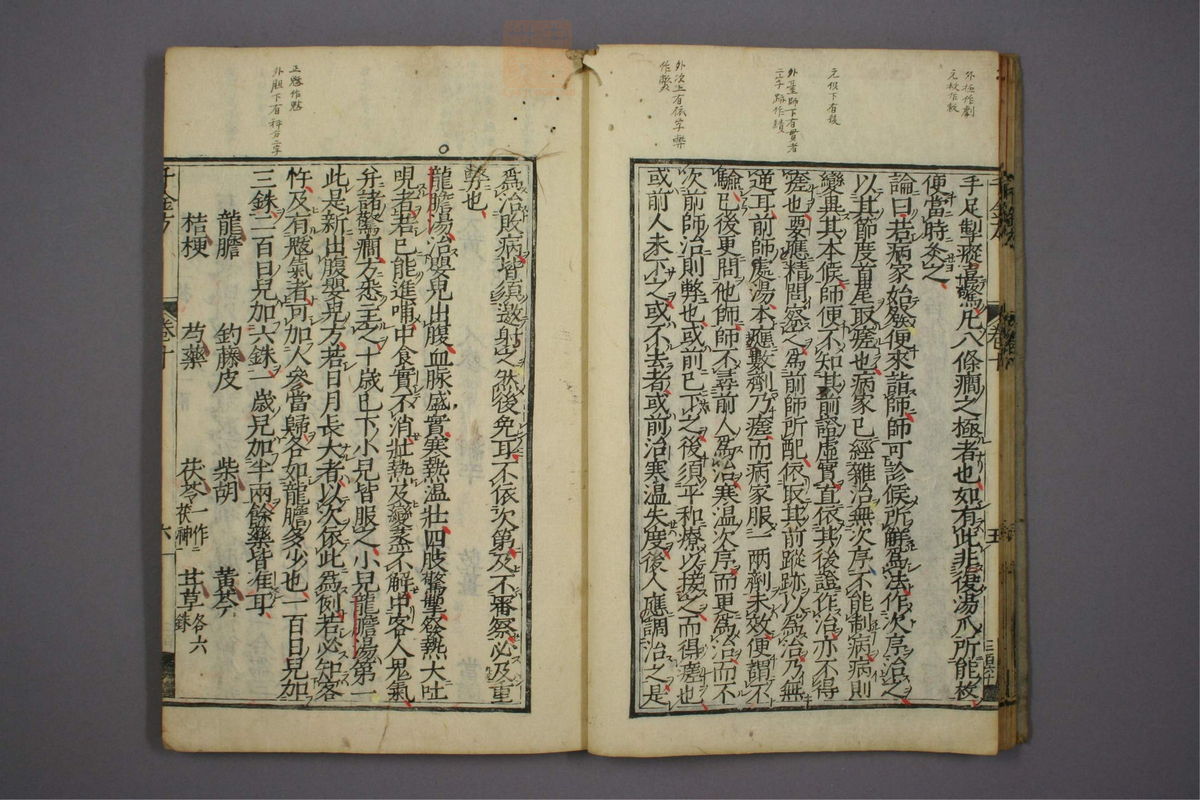 外極作劇
元校作救
元假下有後
外臺師下有貫者
二字
外次上有依字樂
作弊
手足掣瘲喜驚凡八條癇之極者也如有此非復湯爪所能救
便當時灸之
論曰若病家始發便來詣師師可診候所解為法作次序治之
以其節度首尾取瘥也病家已經雜治無次序不能制病病則
變異其本候師便不知其前證虛實直依其後證作治亦不得
瘥也要應精問察之為前師所配依取其前蹤跡以為治乃無
逆耳前師處湯本應數劑乃瘥而病家服一兩劑未效便謂不
驗已後更問他師師不尋前人為治寒溫次序而更為治而不
次前師治則弊也或前已下之後須平和療以接之而得瘥也
或前人未下之或不去者或前治寒溫失度後人應調治之是
千金方
卷十
五
外胆下有秤合二字
為治敗病皆須邀射之然後免耳不依次第及不審察必及重
弊也
龍膽湯治嬰兒出腹血脉盛實寒熱溫壯四肢驚掣發熱大吐
哯者若已能進哺中食實不消壯熱及變蒸不解中客人鬼氣
并諸驚癇方悉主之十歲已下小兒皆服之小兒龍膽湯第一
此是新出腹嬰兒方若日月長大者以次依此為例若必知客
忤及有魃氣者可加人參當歸各如龍膽多少也一百日兒加
三銖二百日兒加六銖一歲兒加半兩餘藥皆准耳
龍膽 釣藤皮 柴胡 黃芩
桔梗 芍藥 茯苓一作茯神 甘草各六銖
千金方
卷十
六